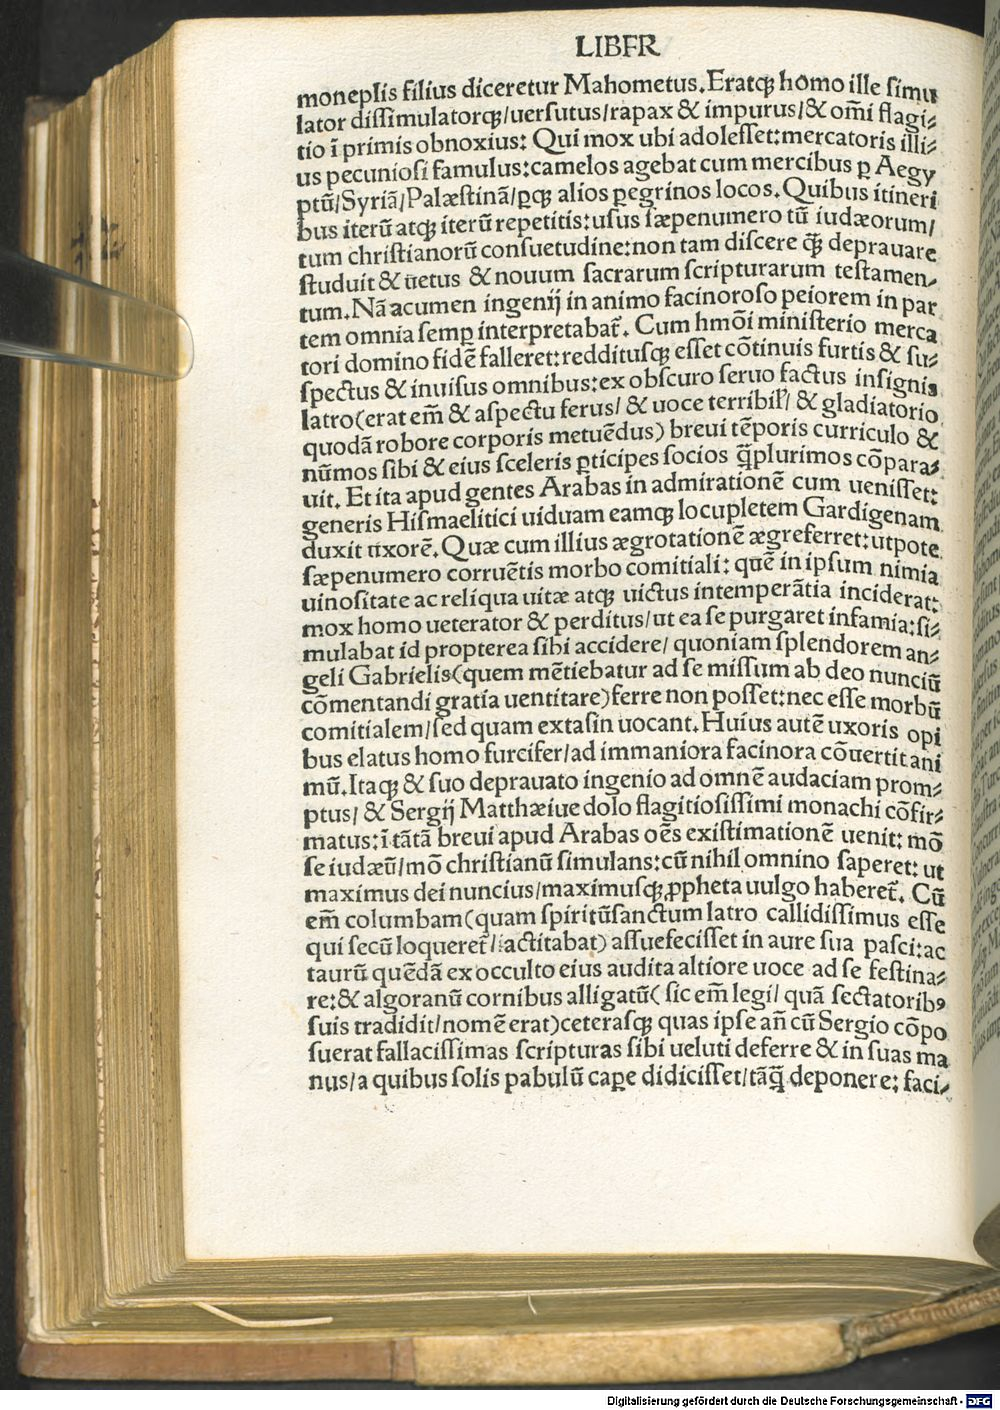 LIBER
moneplis filius diceretur Mahometus. Eratqȝ homo ille simu
lator dissimulatorqȝ/uersutus/rapax & impurus/& om̄i flagi⸗
tio ī primis obnoxius: Qui mox ubi adolesset: mercatoris illi⸗
us pecuniosi famulus: camelos agebat cum mercibus ꝑ Aegy
ptū/Syriā/Palæstinā/ꝑqȝ alios ꝑegrinos locos. Quibus itineri
bus iterū atqȝ iterū repetitis: usus sæpenumero tū iudæorum/
tum christianorū consuetudine: non tam discere q̄ȝ deprauare
studuit & uetus & nouum sacrarum scripturarum testamen⸗
tum. Nā acumen ingenij in animo facinoroso peiorem in par
tem omnia semꝑ interpretabat᷑. Cum hmōi ministerio merca
tori domino fidē falleret: reddituſqȝ esset cōtinuis furtis & su⸗
spectus & inuisus omnibus: ex obscuro seruo factus insignis
latro(erat em̄ & aspectu ferus/ & uoce terribil̛/ & gladiatorio
quodā robore corporis metuēdus) breui tēporis curriculo &
nūmos sibi & eius sceleris ꝑticipes socios q̄ȝplurimos cōpara⸗
uit. Et ita apud gentes Arabas in admirationē cum uenisset:
generis Hismaelitici uiduam eamqȝ locupletem Gardigenam
duxit uxorē. Quæ cum illius ægrotationē ægre ferret: utpote
sæpenumero corruētis morbo comitiali: quē in ipsum nimia
uinositate ac reliqua uitæ atqȝ uictus intemperātia inciderat:
mox homo ueterator & perditus/ut ea se purgaret infamia: si⸗
mulabat id propterea sibi accidere/ quoniam splendorem an⸗
geli Gabrielis(quem mētiebatur ad se missum ab deo nunciū
cōmentandi gratia uentitare)ferre non posset: nec esse morbū
comitialem/sed quam extasin uocant. Huius autē uxoris opi
bus elatus homo furcifer/ad immaniora facinora cōuertit ani
mū. Itaqȝ & suo deprauato ingenio ad omnē audaciam prom⸗
ptus/ & Sergij Matthæiue dolo flagitiosissimi monachi cōfir⸗
matus: ī tātā breui apud Arabas oēs existimationē uenit: mō
se iudæū/mō christianū simulans: cū nihil omnino saperet: ut
maximus dei nuncius/maximuſqȝ ꝓpheta uulgo haberet᷑. Cū
em̄ columbam(quam spiritūsanctum latro callidissimus esse
qui secū loqueret᷑/iactitabat) assuefecisset in aure sua pasci: ac
taurū quēdā ex occulto eius audita altiore uoce ad se festina⸗
re: & algoranū cornibus alligatū( sic em̄ legi/ quā sectatoribꝰ
suis tradidit/nomē erat)ceteraſqȝ quas ipse an̄ cū Sergio cōpo
suerat fallacissimas scripturas sibi ueluti deferre & in suas ma
nus/a quibus solis pabulū caꝑe didicisset/tāq̄ȝ deponere: faci⸗
Digitalisierung gefördert durch die Deutsche Forschungsgemeinschaft - DFG